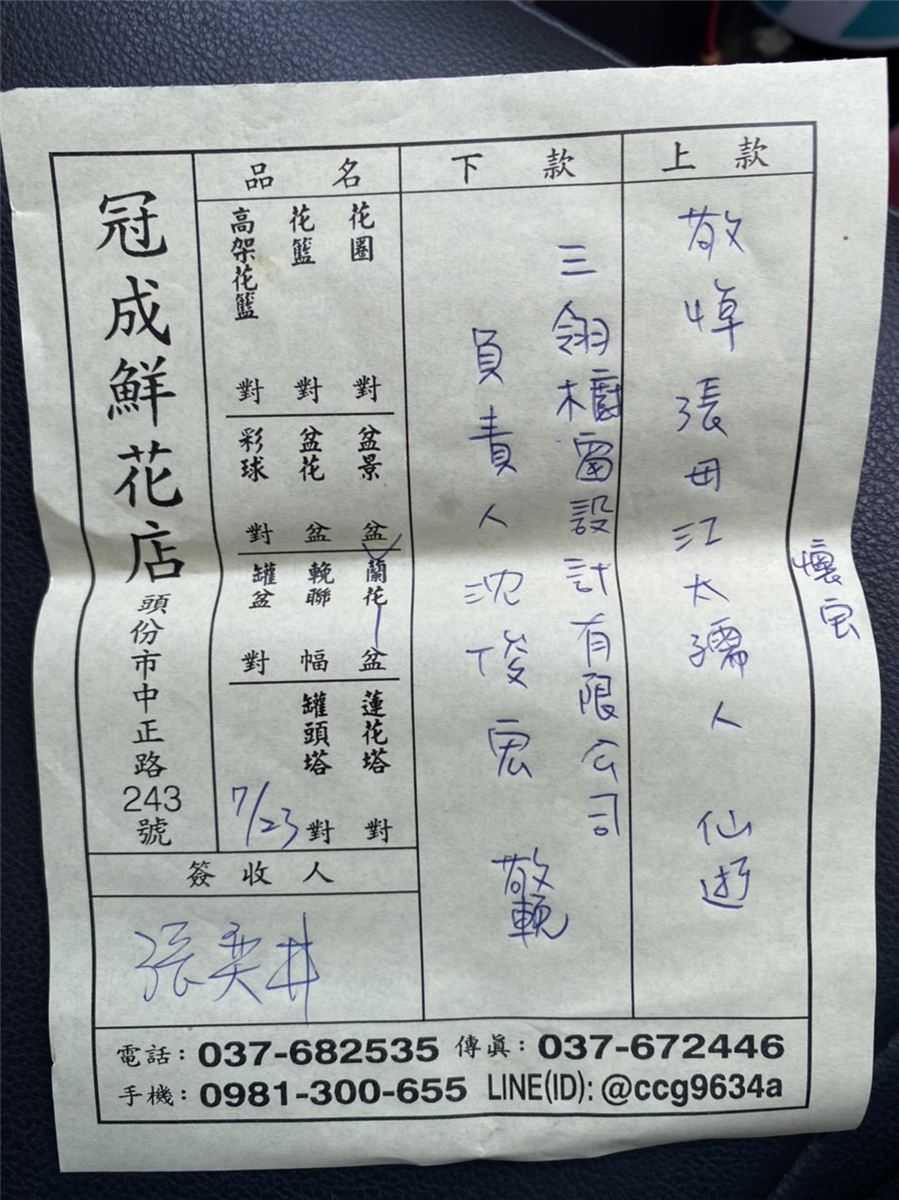 懷宏
上款
敬悼張母江太孺人 仙逝
下款
三翎櫥窗設計有限公司
負責人沈俊宏 敬輓
品名
花圈 對
花籃 對
高架花籃 對
盆景 盆
盆花 盆
彩球 對
蘭花 盆
輓聯 幅
罐盆 對
蓮花塔 對
罐頭塔 對
7/23
冠成鮮花店 頭份市中正路243號
簽收人
張奕井
電話：037-682535 傳眞：037-672446
手機：0981-300-655 LINE(ID): @ccg9634a